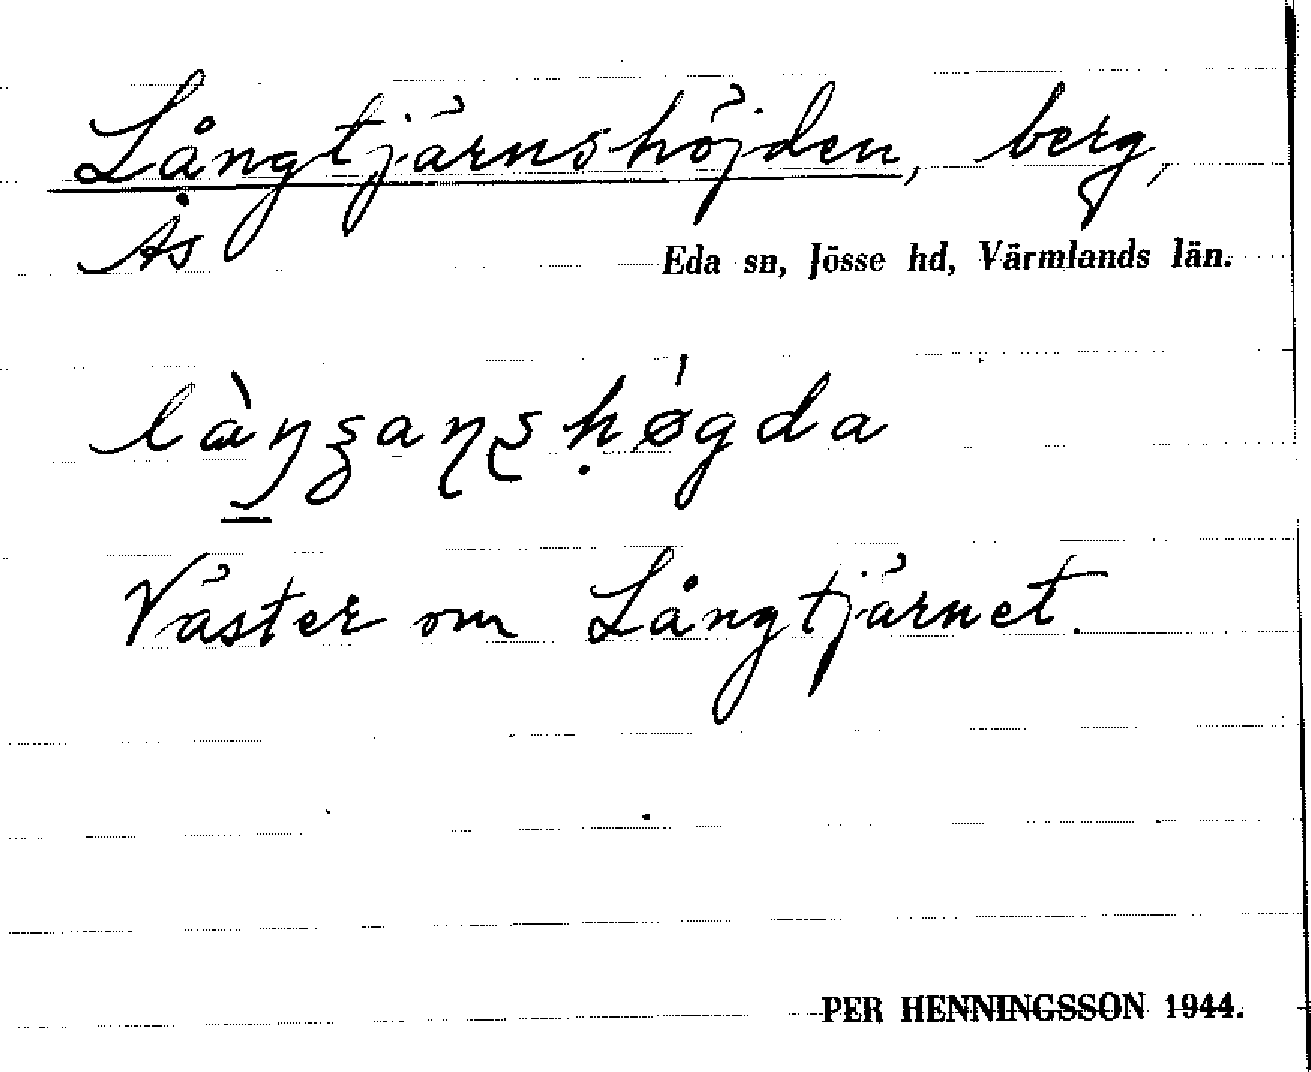 Långtjärnshöjden, berg,
Ås
Eda sn, Jösse hd, Värmlands län.
Väster om Långtjärnet.
PER HENNINGSSON 1944.